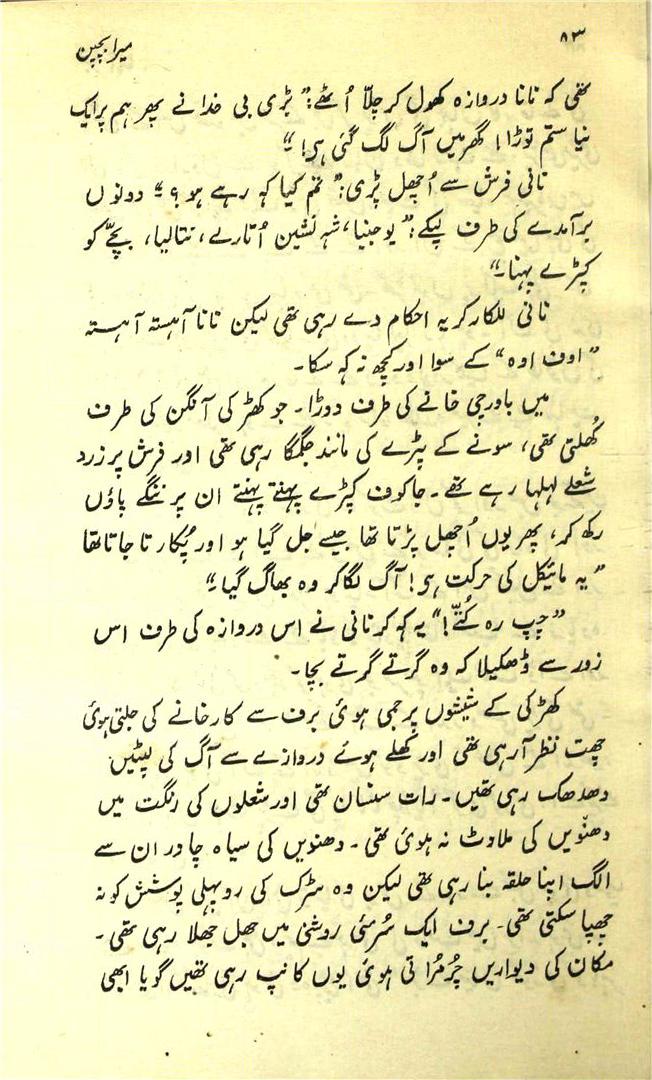 ۸۳
میرا بچپن
تھی کہ نانا دروازہ کھول کر چلّا اُٹھے: ”بڑی بی خدا نے پھر ہم پر ایک
نیا ستم توڑا! گھر میں آگ لگ گئی ہی!“
نانی فرش سے اُچھل پڑی: ”تم کیا کہ رہے ہو؟“ دونوں
برآمدے کی طرف لپکے: ”یوجنیا، شہ نشین اُتارے، نتالیا، بچّے کو
کپڑے پہنا۔“
نانی للکار کر یہ احکام دے رہی تھی لیکن نانا آہستہ آہستہ
”اوف اوہ“ کے سوا اور کچھ نہ کہ سکا۔
میں باورچی خانے کی طرف دوڑا۔ جو کھڑکی آنگن کی طرف
کُھلتی تھی، سونے کے پترے کی مانند جگمگا رہی تھی اور فرش پر زرد
شعلے لہلہا رہے تھے۔ جاکوف کپڑے پہنتے پہنتے ان پر ننگے پاؤں
رکھ کر، پھر یوں اُچھل پڑتا تھا جیسے جل گیا ہو اور پُکارتا جاتا تھا
”یہ مائیکل کی حرکت ہی! آگ لگا کر وہ بھاگ گیا۔“
”چپ رہ کُتّے!“ یہ کہ کر نانی نے اس دروازہ کی طرف اس
زور سے ڈھکیلا کہ وہ گرتے گرتے بچا۔
کھڑکی کے شیشوں پر جمی ہوئی برف سے کارخانے کی جلتی ہوئی
چھت نظر آرہی تھی اور کُھلے ہوئے دروازے سے آگ کی لپٹیں
دھدھک رہی تھیں۔ رات سنسان تھی اور شعلوں کی رنگت میں
دھنّویں کی ملاوٹ نہ ہوئی تھی۔ دھنویں کی سیاہ چادر ان سے
الگ اپنا حلقہ بنا رہی تھی لیکن وہ سڑک کی روپہلی پوشش کو نہ
چھپا سکتی تھی۔ برف ایک سُرمئی روشنی میں جھل جھلا رہی تھی۔
مکان کی دیواریں چُرمُراتی ہوئی یوں کانپ رہی تھیں گویا ابھی